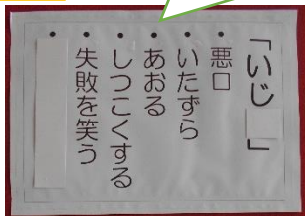 「いじ」
• 悪口
• いたずら
• あおる
• しつこくする
• 失敗を笑う
•